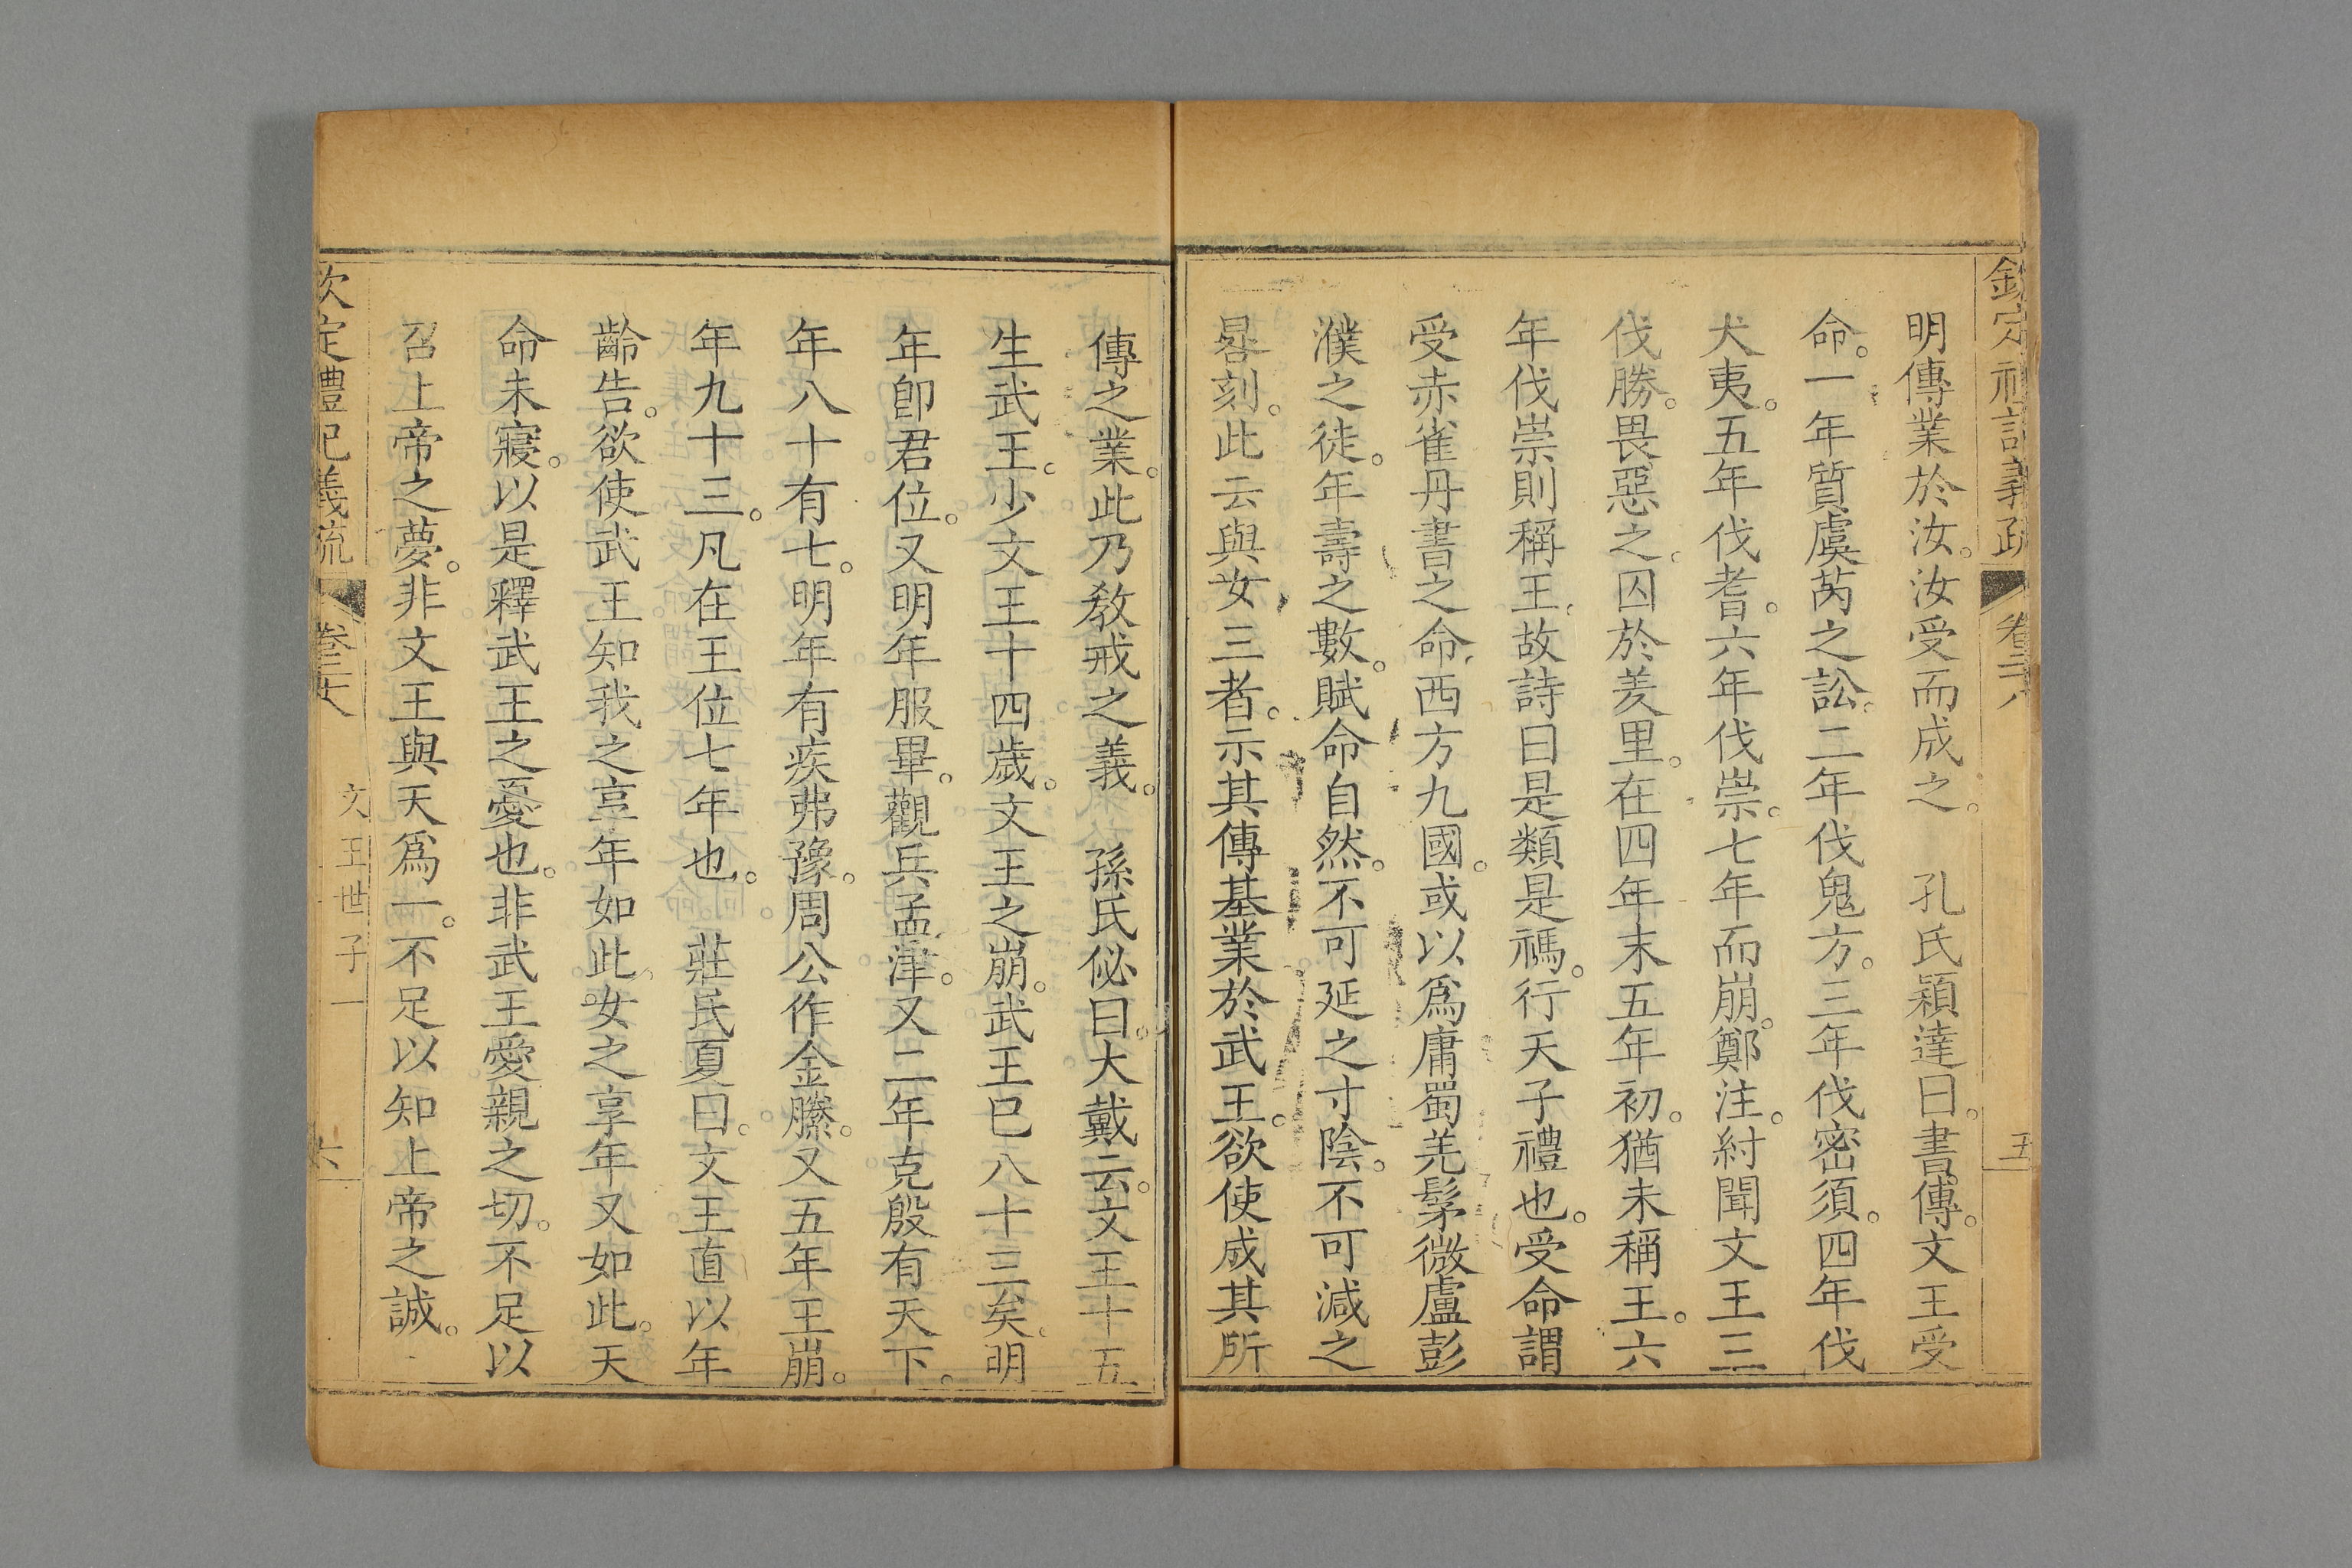 欽定禮記義疏 卷二八 五
明傳業於汝。汝受而成之。 孔氏穎達曰。書傳。文王受
命。一年質虞芮之訟。二年伐鬼方。三年伐密須。四年伐
犬夷。五年伐耆。六年伐崇。七年而崩。鄭注。紂聞文王三
伐勝。畏惡之。囚於羑里。在四年末五年初。猶未稱王。六
年伐崇則稱王。故詩曰是類是禡。行天子禮也。受命謂
受赤雀丹書之命。西方九國。或以爲庸蜀羌髳微盧彭
濮之徒。年壽之數。賦命自然。不可延之寸陰。不可減之
晷刻。此云與女三者。示其傳基業於武王。欲使成其所
傳之業。此乃敎戒之義。 孫氏佖曰。大戴云。文王十五
生武王。少文王十四歲。文王之崩。武王巳八十三矣。明
年卽君位。又明年服畢。觀兵孟津。又二年克殷有天下。
年八十有七。明年有疾弗豫。周公作金縢。又五年王崩。
年九十三。凡在王位七年也。 莊氏夏曰。文王直以年
齡告。欲使武王知我之享年如此。女之享年又如此。天
命未寢。以是釋武王之憂也。非武王愛親之切。不足以
召上帝之夢。非文王與天爲一。不足以知上帝之誠。
欽定禮記義疏 卷二八 文王世子一 六